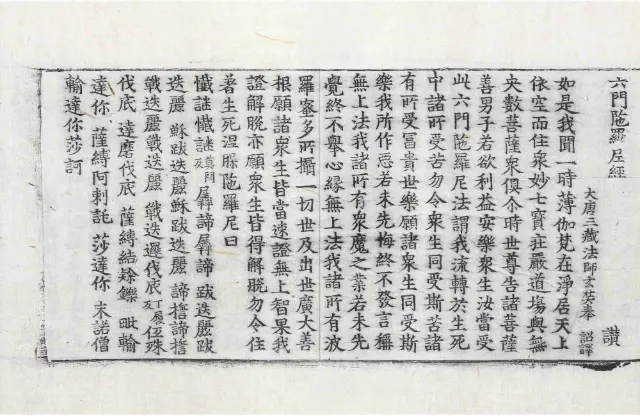 六門陁羅尼經 讚
大唐三藏法師玄奘奉 詔譯
如是我聞一時薄伽梵在淨居天上
依空而住衆妙七寶莊嚴道場與無
央數菩薩衆俱尒時世尊告諸菩薩
善男子若欲利益安樂衆生汝當受
此六門陁羅尼法謂我流轉於生死
中諸所受苦勿令衆生同受斯苦諸
有所受冨貴世樂願諸衆生同受斯
樂我所作惡若未先悔終不發言稱
無上法我諸所有衆魔之業若未先
覺終不舉心緣無上法我諸所有波
羅蜜多所攝一切世及出世廣大善
根願諸衆生皆當速證無上智果我
證解脫亦願衆生皆得解脫勿令住
著生死涅槃陁羅尼曰
懺謎懺謎羼諦羼諦 跋迭麗跋
迭麗 穌跋迭麗穌跋迭麗 諦擔諦擔
戰迭麗戰迭麗 戰迭邏伐底丁履反 殊
伐底 達磨伐底 薩縛結 鑠 毗輸
達你 薩縛阿剌詑 莎達你 末諾僧
輸達你莎訶